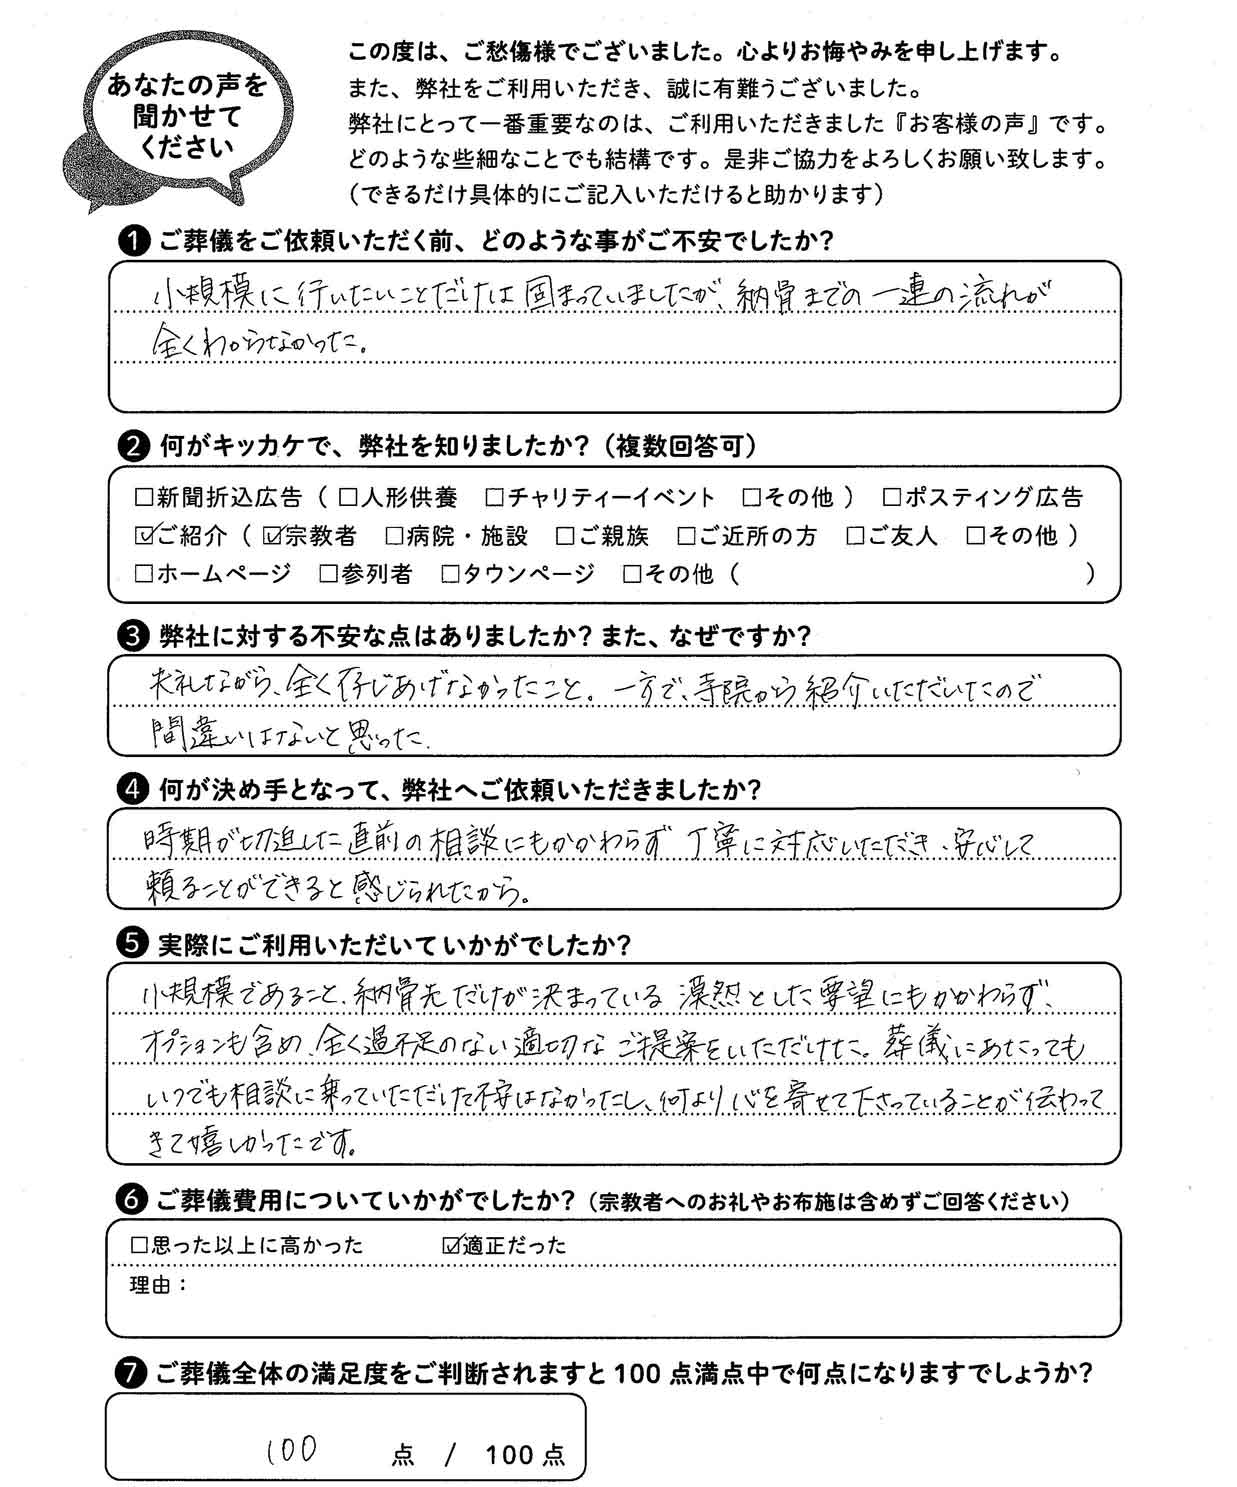 あなたの声を
聞かせて
ください
この度は、ご愁傷様でございました。心よりお悔やみを申し上げます。
また、弊社をご利用いただき、誠に有難うございました。
弊社にとって一番重要なのは、ご利用いただきました『お客様の声』です。
どのような些細なことでも結構です。是非ご協力をよろしくお願い致します。
(できるだけ具体的にご記入いただけると助かります)
❶ ご葬儀をご依頼いただく前、どのような事がご不安でしたか?
小規模に行いたいことだけは固まっていましたが、納骨までの一連の流れが
全くわからなかった。
❷ 何がキッカケで、弊社を知りましたか?(複数回答可)
□新聞折込広告(□人形供養 □チャリティーイベント □その他) □ポスティング広告
☑ご紹介(☑宗教者 □病院・施設 □ご親族 □ご近所の方 □ご友人 □その他)
□ホームページ □参列者 □タウンページ □その他( )
❸ 弊社に対する不安な点はありましたか?また、なぜですか?
失礼ながら、全く存じあげなかったこと。一方で、寺院から紹介いただいたので
間違いはないと思った。
❹ 何が決め手となって、弊社へご依頼いただきましたか?
時期が切迫した直前の相談にもかかわらず丁寧に対応いただき、安心して
頼ることができると感じられたから。
❺ 実際にご利用いただいていかがでしたか?
小規模であること、納骨先だけが決まっている漠然とした要望にもかかわらず、
オプションも含め、全く過不足のない適切なご提案をいただけた。葬儀にあたっても
いつでも相談に乗っていただけた不安はなかったし、何より心を寄せて下さっていることが伝わって
きて嬉しかったです。
❻ ご葬儀費用についていかがでしたか?(宗教者へのお礼やお布施は含めずご回答ください)
□思った以上に高かった ☑適正だった
理由:
❼ ご葬儀全体の満足度をご判断されますと100点満点中で何点になりますでしょうか?
100 点 / 100点